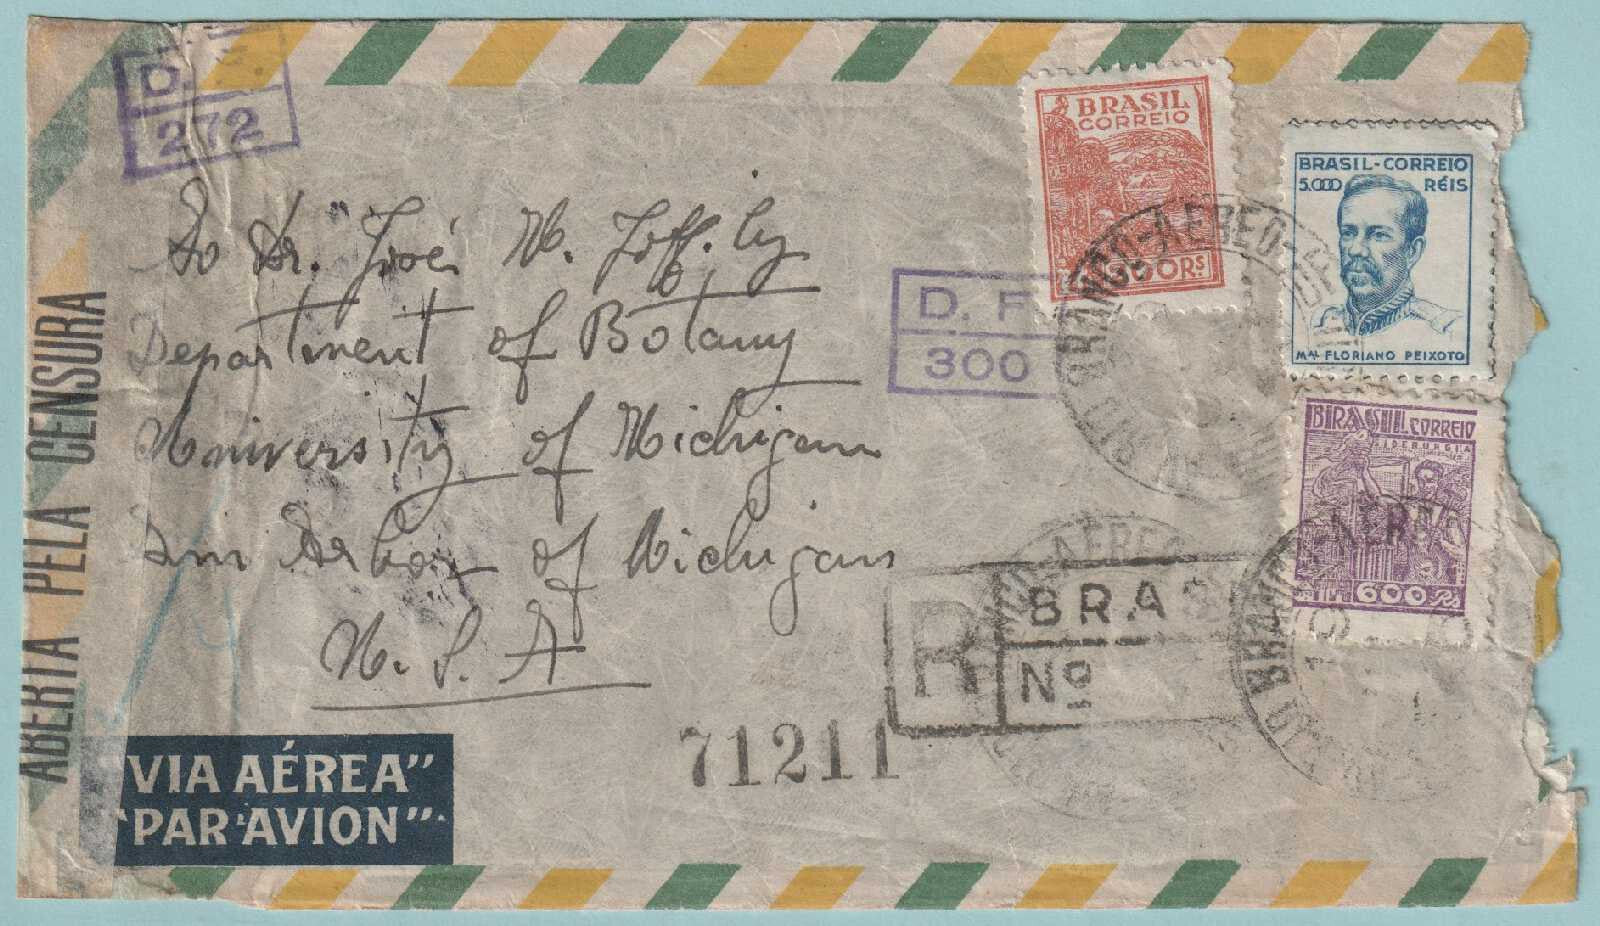 D. F.
272
BRASIL
CORREIO
RS
BRASIL-CORREIO
5.000 RÉIS
MAL FLORIANO PEIXOTO
BRASIL CORREIO
SIDERURGIA
600 RS
D. F.
300
BRANCO-AEREO-
Ao Dr. José M. Joffily
Department of Botany
University of Michigan
Ann Arbor of Michigan
U. S. A
AÉREO
BRANCO-AEREO
R
BRAS
Nº
71211
ABERTA PELA CENSURA
"VIA AÉREA"
"PAR AVION"